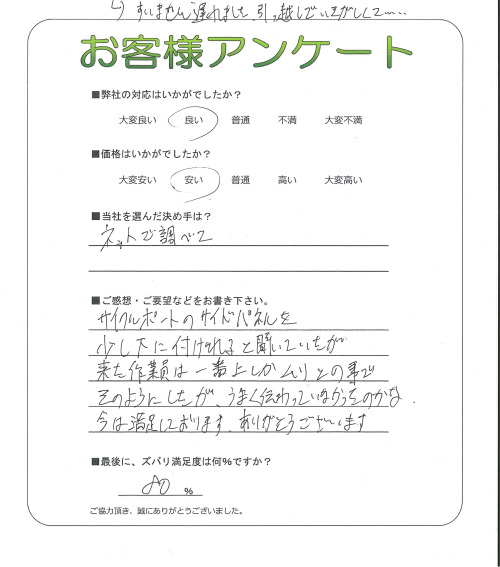 すいません遅れました 引っ越しでいそがしくて……
お客様アンケート
■弊社の対応はいかがでしたか？
大変良い 良い 普通 不満 大変不満
■価格はいかがでしたか？
大変安い 安い 普通 高い 大変高い
■当社を選んだ決め手は？
ネットで調べて
■ご感想・ご要望などをお書き下さい。
サイクルポートのサイドパネルを
少し下に付けれると聞いていたが
来た作業員は一番上しかムリとの事で
そのようにしたが、うまく伝わっていなかったのかな
今は満足しております。ありがとうございます
■最後に、ズバリ満足度は何％ですか？
80 ％
ご協力頂き、誠にありがとうございました。